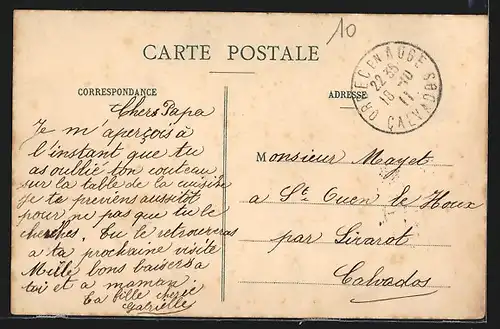 10
CARTE POSTALE
CORRESPONDANCE
ADRESSE
ORBEC EN AUGE
22 35
18 -10
11
CALVADOS
Chers Papa
Je m'aperçois à
l'instant que tu
as oublié ton couteau
sur la table de la cuisine
je te préviens aussitôt
pour ne pas que tu le
cherches. Tu le retrouveras
a ta prochaine visite
Mille bons baisers a
toi et a maman.
ta fille cherie
Gabrielle
Monsieur Mayet
a St Ouen le Houx
par Livarot
Calvados